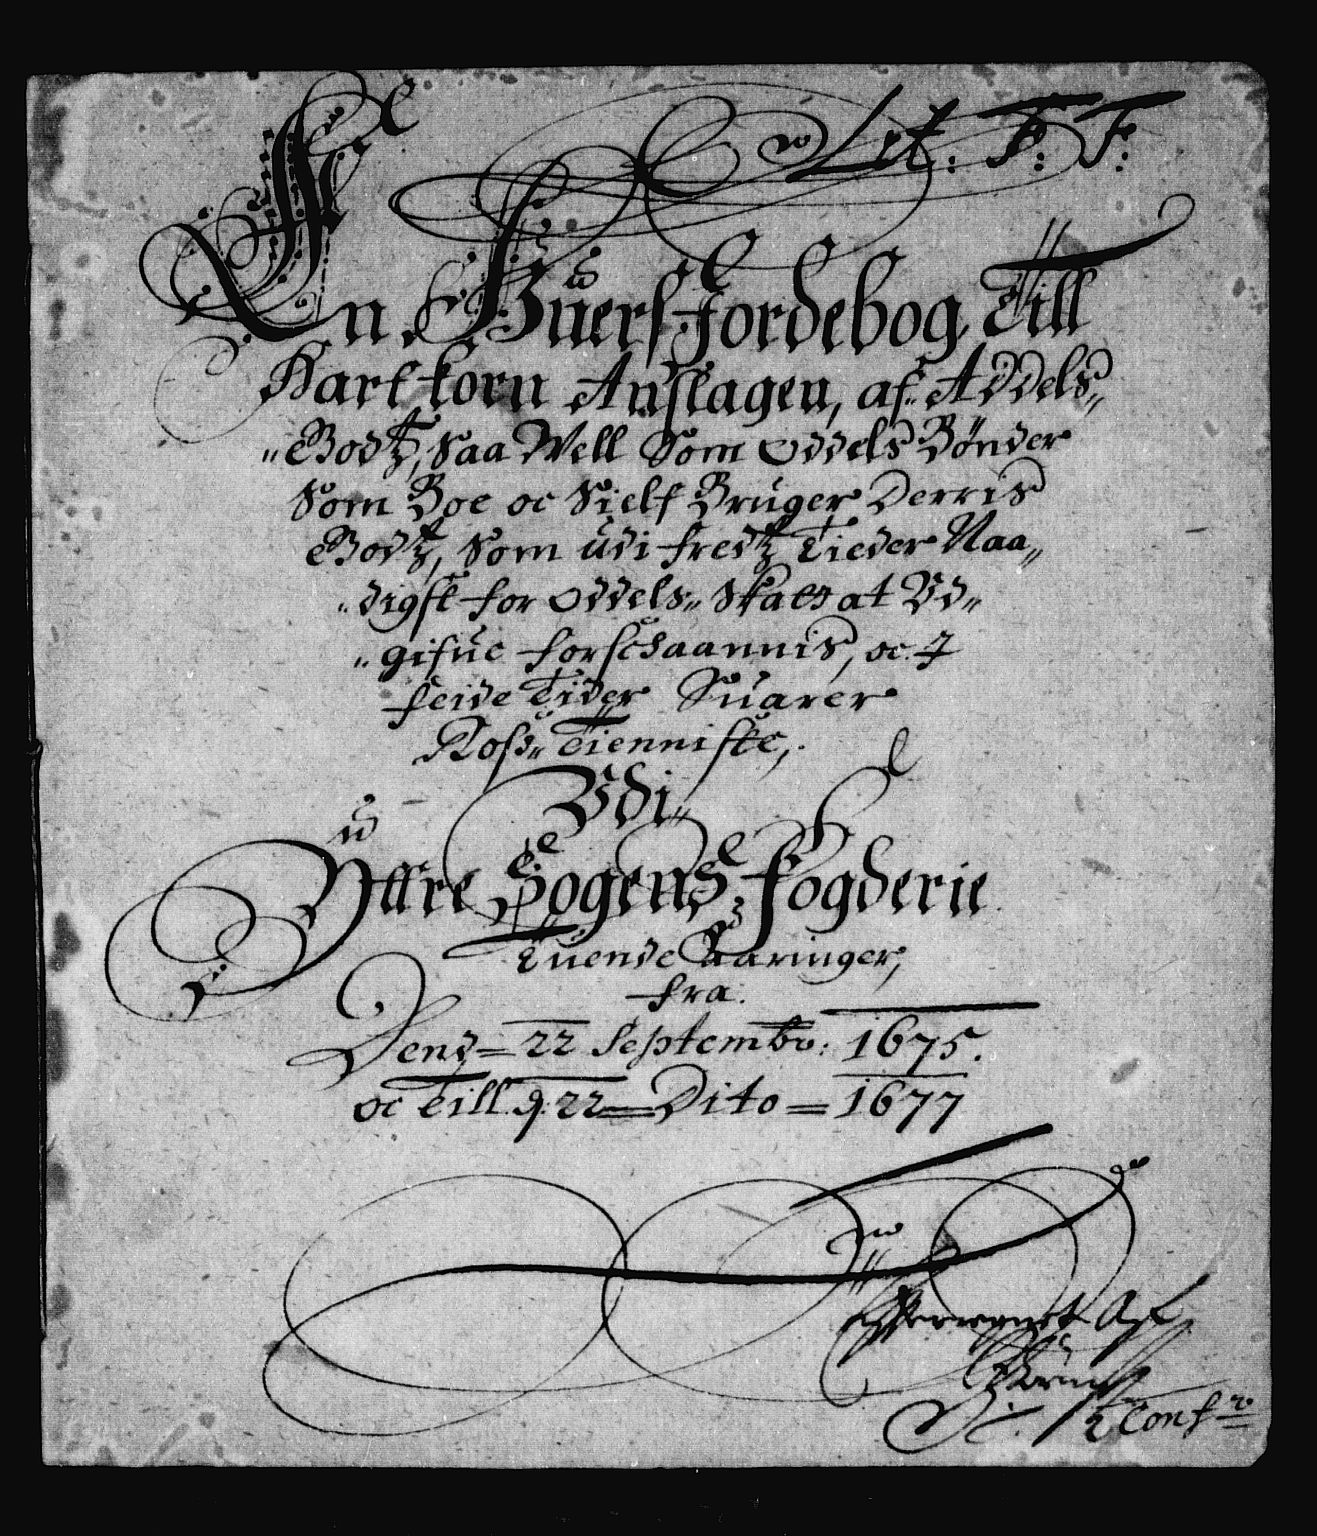 Lit: F: F:
En Tüers Jordebog Till
Hartkorn Anslagen, af Addels„
„Bodtz, Saa Well Som Oddels Bønder
Som Boe oc Sielf Brüger Derris
Bodtz, Som üdi fredtz Tieder Naa„
„digst for Oddels„ Skatt at Vd„
„gifüe forschaannis, oc I
feide Tider Süarer
Ross„ Tienniste,
Vdi„
Ÿttre Sogens Fogderie
Tüende Aaringer,
fra:
Dend = 22 Septembr: 1675.
oc Till d: 22 = Dito = 1677